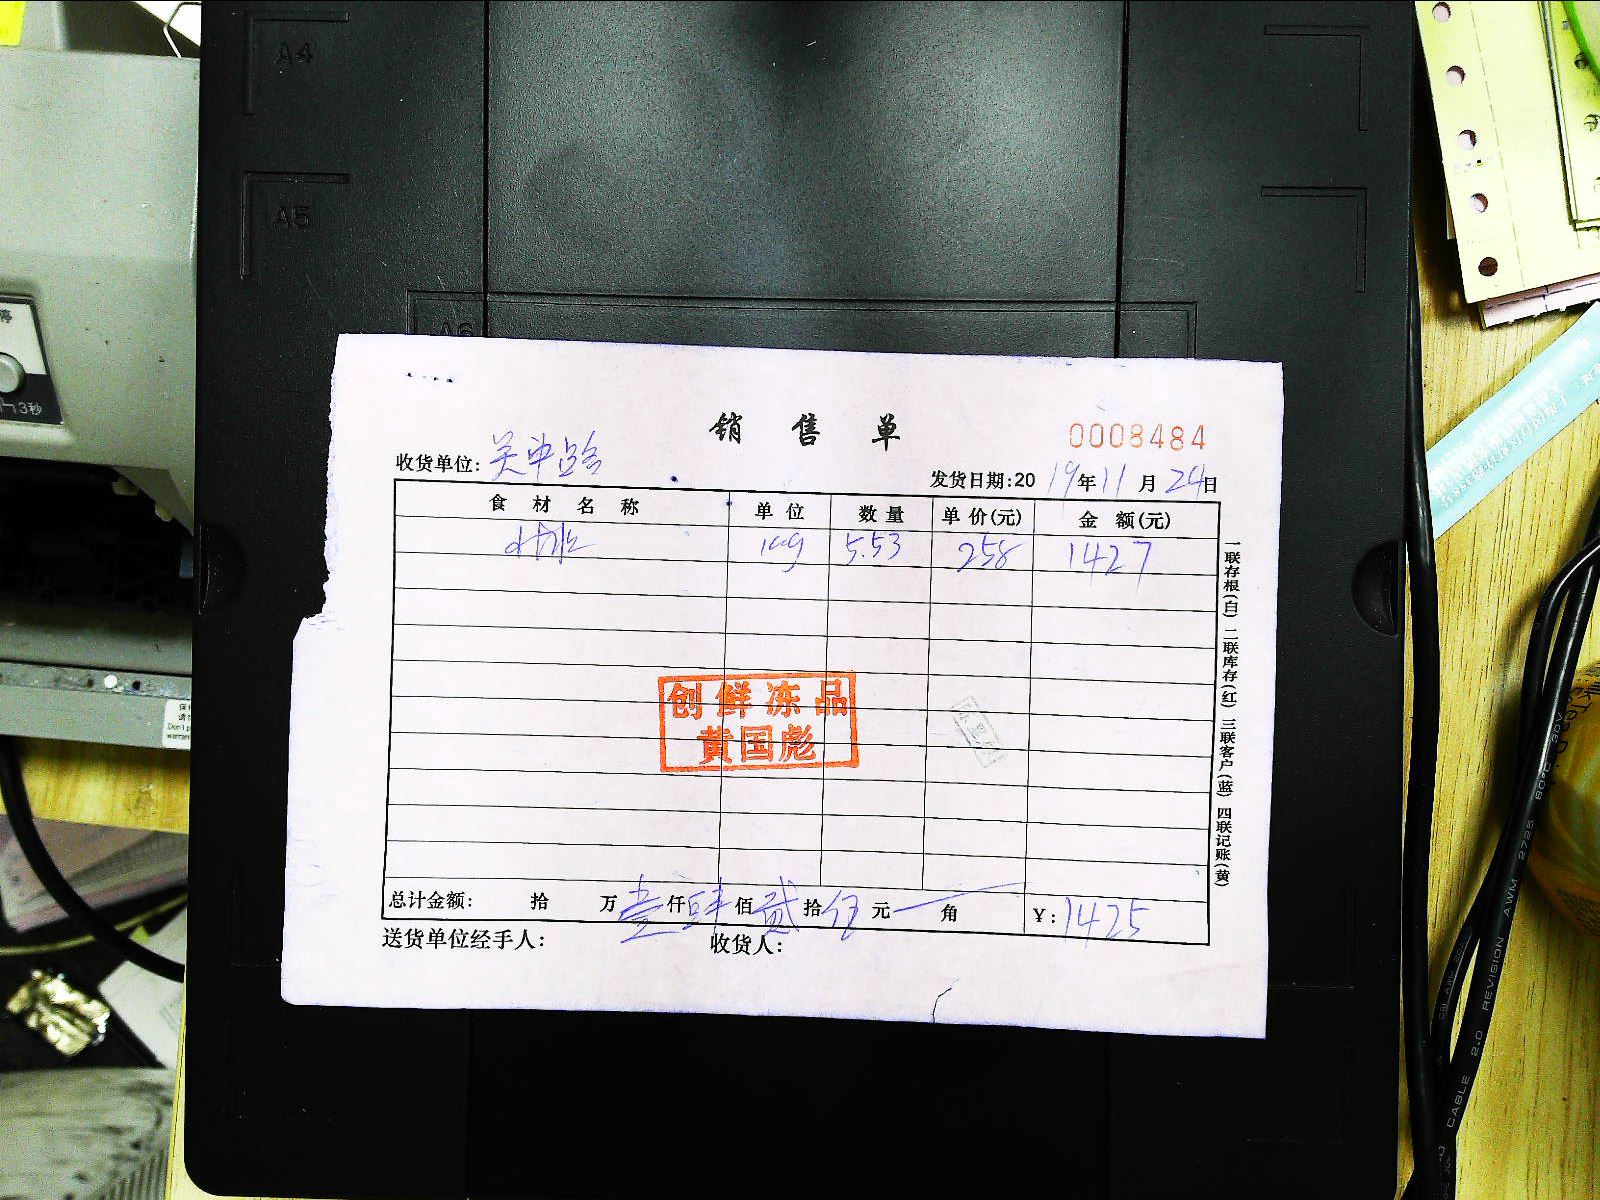 A4
A5
A6
停
3秒
销售单
0008484
收货单位:关中路
发货日期:2019年11月24日
食材名称 单位 数量 单价(元) 金额(元)
kg 5.53 258 1427
创鲜冻品
黄国彪
总计金额: 拾 万壹仟肆佰贰拾伍元 角 ¥:1425
送货单位经手人: 收货人:
一联存根(白) 二联库存(红) 三联客户(蓝) 四联记账(黄)
CABLE 2.0 REVISION AWM 2725 80°C 30V